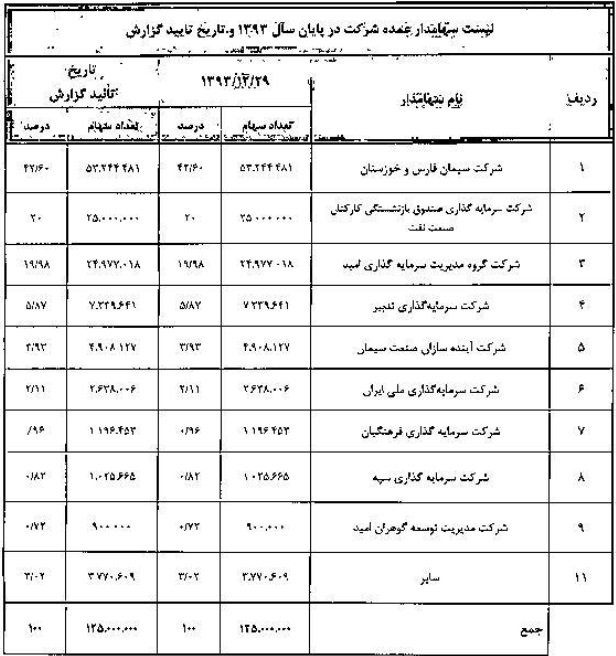 لیست سهامدار عمده شرکت در پایان سال ۱۳۹۳ و تاریخ تایید گزارش
ردیف نام سهامدار ۱۳۹۳/۱۲/۲۹ تاریخ
تائید گزارش
تعداد سهام درصد تعداد سهام درصد
۱ شرکت سیمان فارس و خوزستان ۵۳.۲۴۴.۴۸۱ ۴۲/۶۰ ۵۳.۲۴۴.۴۸۱ ۴۲/۶۰
۲ شرکت سرمایه گذاری صندوق بازنشستگی کارکنان
صنعت نفت ۲۵.۰۰۰.۰۰۰ ۲۰ ۲۵.۰۰۰.۰۰۰ ۲۰
۳ شرکت گروه مدیریت سرمایه گذاری امید ۲۴.۹۷۷.۰۱۸ ۱۹/۹۸ ۲۴.۹۷۷.۰۱۸ ۱۹/۹۸
۴ شرکت سرمایه‌گذاری تدبیر ۷.۳۳۹.۶۴۱ ۵/۸۷ ۷.۳۳۹.۶۴۱ ۵/۸۷
۵ شرکت آینده سازان صنعت سیمان ۴.۹۰۸.۱۲۷ ۳/۹۳ ۴.۹۰۸.۱۲۷ ۳/۹۳
۶ شرکت سرمایه‌گذاری ملی ایران ۲.۶۳۸.۰۰۶ ۲/۱۱ ۲.۶۳۸.۰۰۶ ۲/۱۱
۷ شرکت سرمایه گذاری فرهنگیان ۱.۱۹۶.۴۵۳ ۰/۹۶ ۱.۱۹۶.۴۵۳ ۰/۹۶
۸ شرکت سرمایه گذاری سپه ۱.۰۲۵.۶۶۵ ۰/۸۲ ۱.۰۲۵.۶۶۵ ۰/۸۲
۹ شرکت مدیریت توسعه گوهران امید ۹۰۰.۰۰۰ ۰/۷۲ ۹۰۰.۰۰۰ ۰/۷۲
۱۱ سایر ۳.۷۷۰.۶۰۹ ۳/۰۲ ۳.۷۷۰.۶۰۹ ۳/۰۲
جمع ۱۲۵.۰۰۰.۰۰۰ ۱۰۰ ۱۲۵.۰۰۰.۰۰۰ ۱۰۰